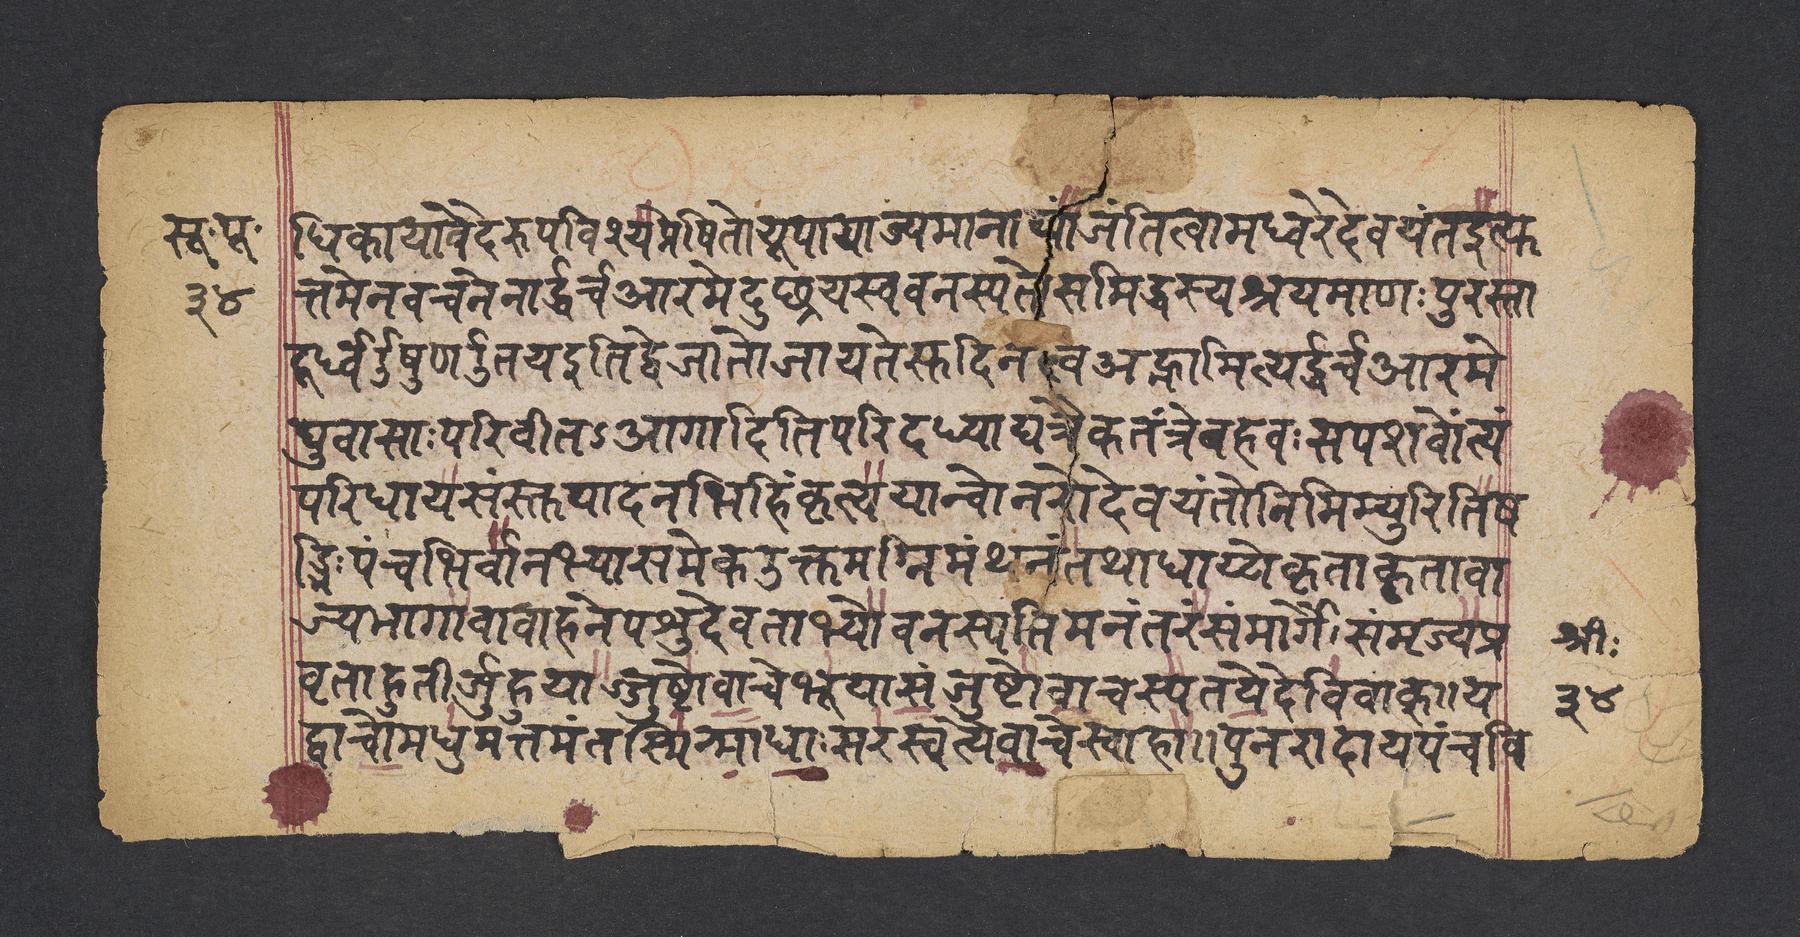 सू॰ पू॰
३४
धिकायावेदेरुपविश्यप्रेषितोयूपायाज्यमानायांजंतित्वामध्वरेदेवयंतइत्यु
त्तमेनवचनेनार्द्धर्चआरमेदुच्छ्रयस्ववनस्पतेसमिद्धस्यश्रयमाणःपुरस्ता
दूर्ध्वऊषुणऊतयइतिद्वेजातोजायतेसुदिनत्वेअह्नामित्यर्द्धर्चआरमे
द्युवासाःपरिवीतऽआगादितिपरिदध्याद्यत्रैकतंत्रेबहवःसपशवोंत्यं
परिधायसंस्तुयादनभिहिंकृत्ययान्वोनरोदेवयंतोनिमिम्युरितिष
ड्भिःपंचभिर्वानभ्यासमेकउक्तमग्निमंथनंतथाधाय्येकृताकृतावा
ज्यभागावावाहनेपशुदेवताभ्योवनस्पतिमनंतरंसंमार्गैःसंमृज्यप्र
वृताहुतीर्जुहुयाज्जुष्टोवाचेभूयासंजुष्टोवाचस्पतयेदेविवाक्॥य
द्वाचोमधुमत्तमंतस्मिन्माधाःसरस्वत्यैवाचेस्वाहा॥पुनरादायपंचवि
श्रीः
३४